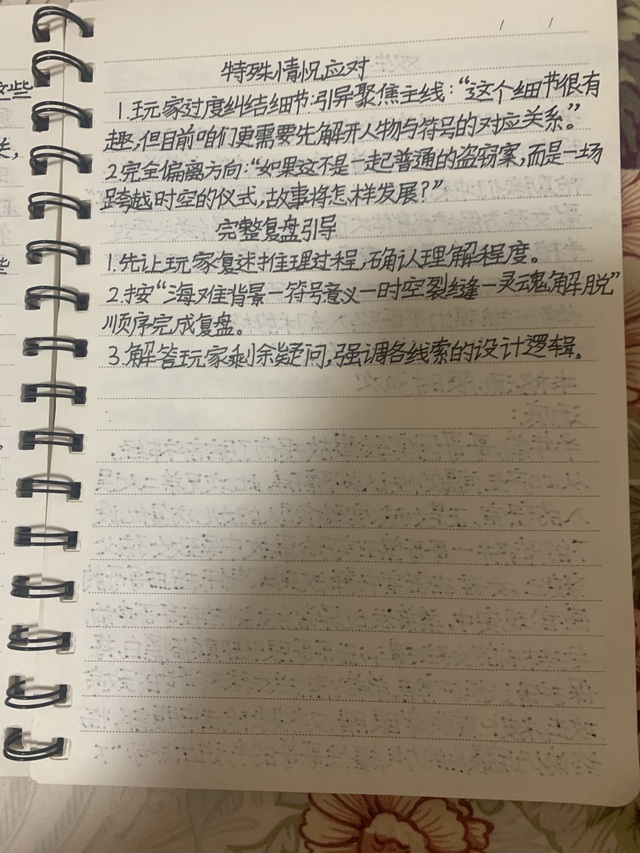 特殊情况应对
1.玩家过度纠结细节:引导聚焦主线:“这个细节很有
趣,但目前咱们更需要先解开人物与符号的对应关系。”
2.完全偏离方向:“如果这不是一起普通的盗窃案,而是一场
跨越时空的仪式,故事将怎样发展?”
完整复盘引导
1.先让玩家复述推理过程,确认理解程度。
2.按“海难背景一符号意义一时空裂缝一灵魂解脱”
顺序完成复盘。
3.解答玩家剩余疑问,强调各线索的设计逻辑。